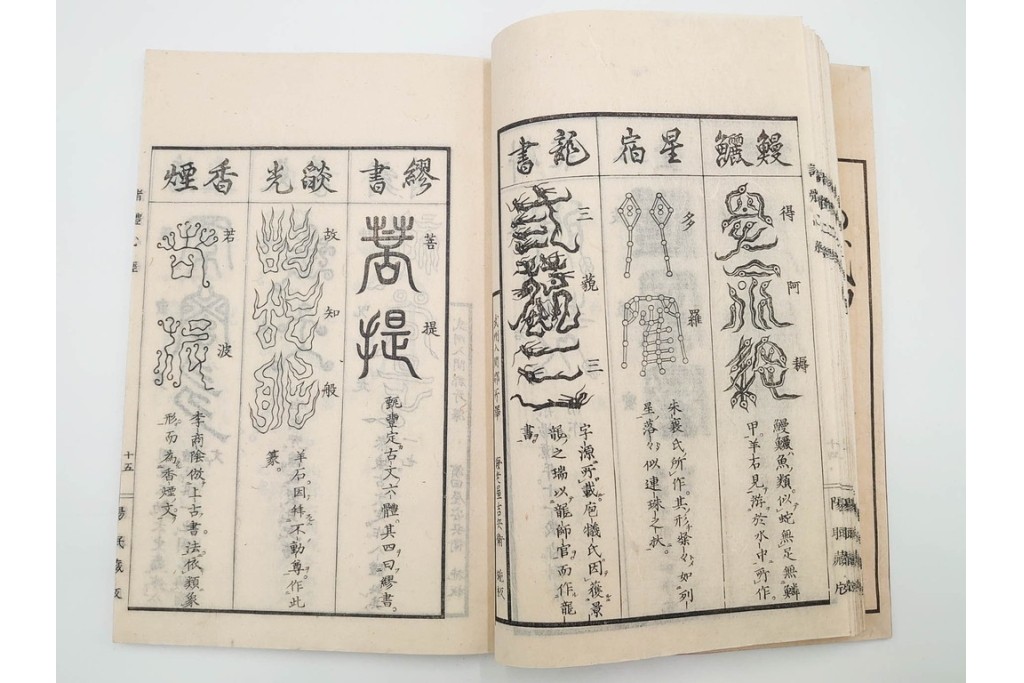 鰻鱺
得
阿
耨
鰻鱺魚類。似蛇無足無鱗
甲。羊石見游於水中所作。
星宿
多
羅
朱襄氏所作。其形粲々如列
星落々似連珠之狀
龍書
三
藐
三
字源所載庖犧氏因獲景
龍之瑞以龍師官而作龍
書。
繆書
菩
提
甄豐定古文六體。其四曰繆書。
燄光
故
知
般
羊石因拜不動尊作此
篆。
香煙
若
波
李商隱倣上古書法依類象
形而為香煙文
十五